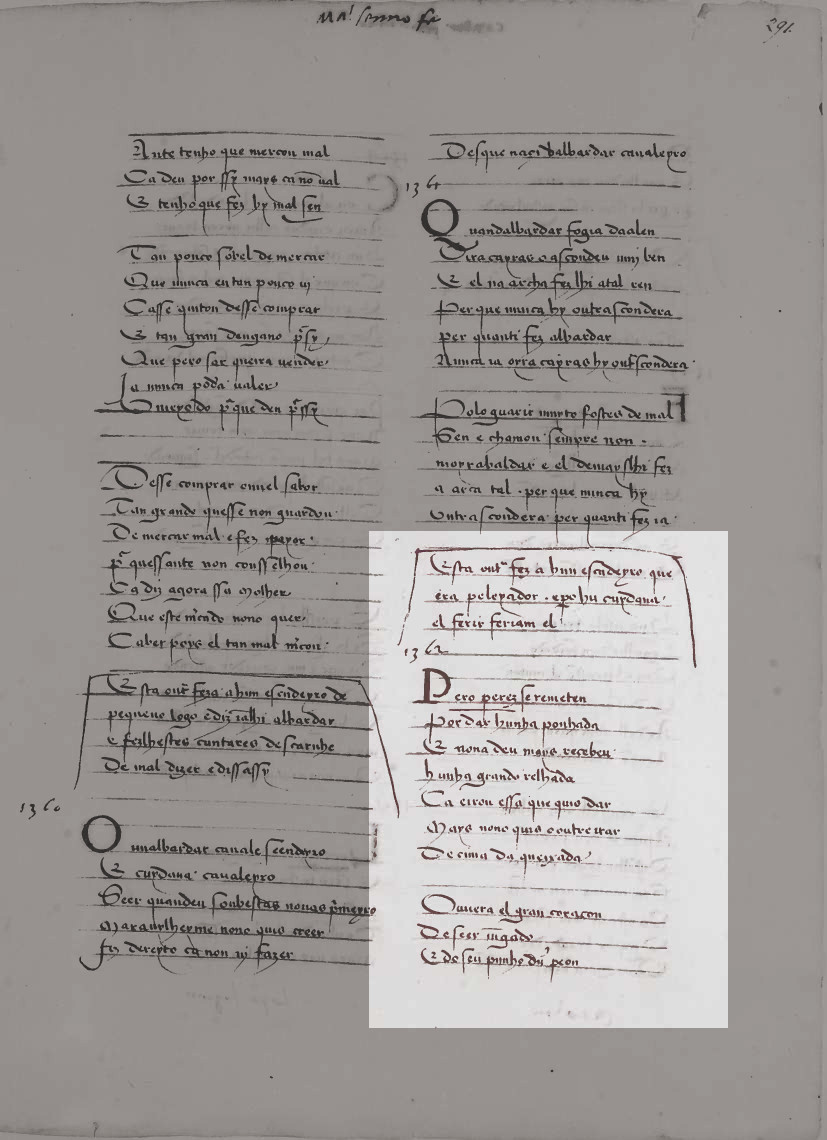 Mart. sanno fr
291.
Ante tenho que mercou mal
Ca deu por ssy mays ca no ual
E tenho que fez hy mal sen
Tan pouco sobel de mercar
Que nunca eu tan pouco ui
Ca sse quiton desse comprar
E tan gran dengano pˢsy
Que pero sar queira uender
Ja nunca poda ualer
O meyo do pˢ que deu pˢ ssy
Desse comprar ouuel sabor
Tan grande quesse non guardou
De mercar mal e fez peyor
pˢ quessante non consselhou
Ca diz agora ssa molher
Que este mcado nono quer
Caber peyo el tan mal mcou
Esta outˢ feza a huun escudeyro de
pequeno logo e diziālhi albardar
e feilhestes cantares descarnhe
De mal dizer e dissassy
1360
O unalbardar caualo scendeyro
E cuydaua caualeyro
Seer quandeu soubestas nouas pˢmeyro
Marauilheyme nono quis creer
fiz dereyto ca non ui fazer
Des que naçi dalbardar caualeyro
1361
Quandalbardar fogia daalen
Tira capras o ascondeu umj ben
E el na archa fez lhi atal ren
Per que nunca hy outrascondera
per quanti fez albardar
Nunca ia outra capras hy outˢscondera
Polo guarir muyto fostes de mal
Sen e chamou sempre non
moyrabaldar e el demayslhi fez
a arca tal . per que nunca hy
outrascondera per quanti fez ia
Esta outˢ fez a huun escudeyro que
era peleiador . e po hu cuydaua
el ferir feriam el
1362
Pero perez se remeten
Por dar hunha ponhada
E nona deu mays recebeu
hunha grande relhada
Ca eirou essa que quio dar
Mays nono quis o outreirar
De cima da queixada
Ouuera el gran coraçon
De seer uīgado
E de seu punho dū peon